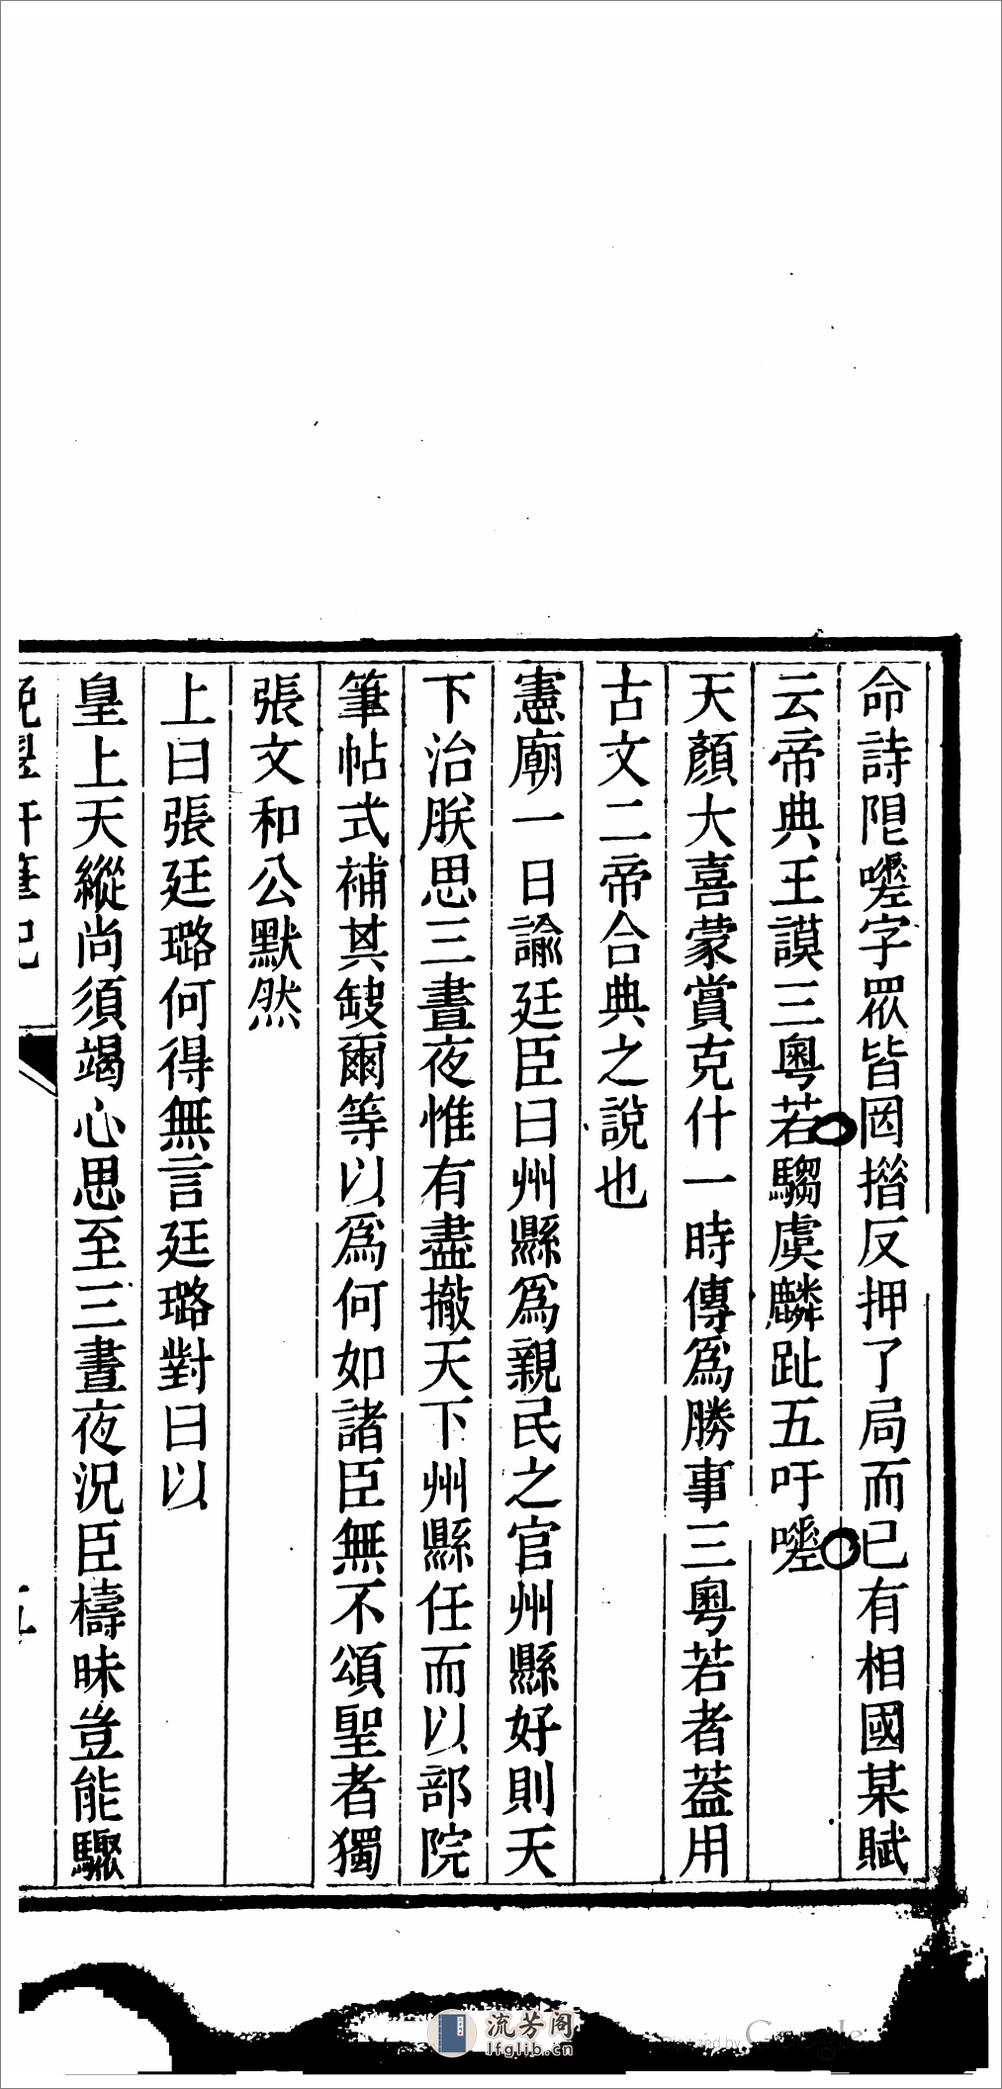 命詩限嚦字眾皆罔措反押了局而已有相國某賦
云帝典王謨三粵若騶虞麟趾五吁嚦
天顏大喜蒙賞克什一時傳爲勝事三粵若者蓋用
古文二帝合典之說也
憲廟一日諭廷臣曰州縣爲親民之官州縣好則天
下治朕思三晝夜惟有盡撤天下州縣任而以部院
筆帖式補其缺爾等以爲何如諸臣無不頌聖者獨
張文和公默然
上曰張廷璐何得無言廷璐對曰以
皇上天縱尚須竭心思至三晝夜況臣檮昧豈能驟
軒筆記
五
流芳阁
lfglib.cn
Digitized by Google